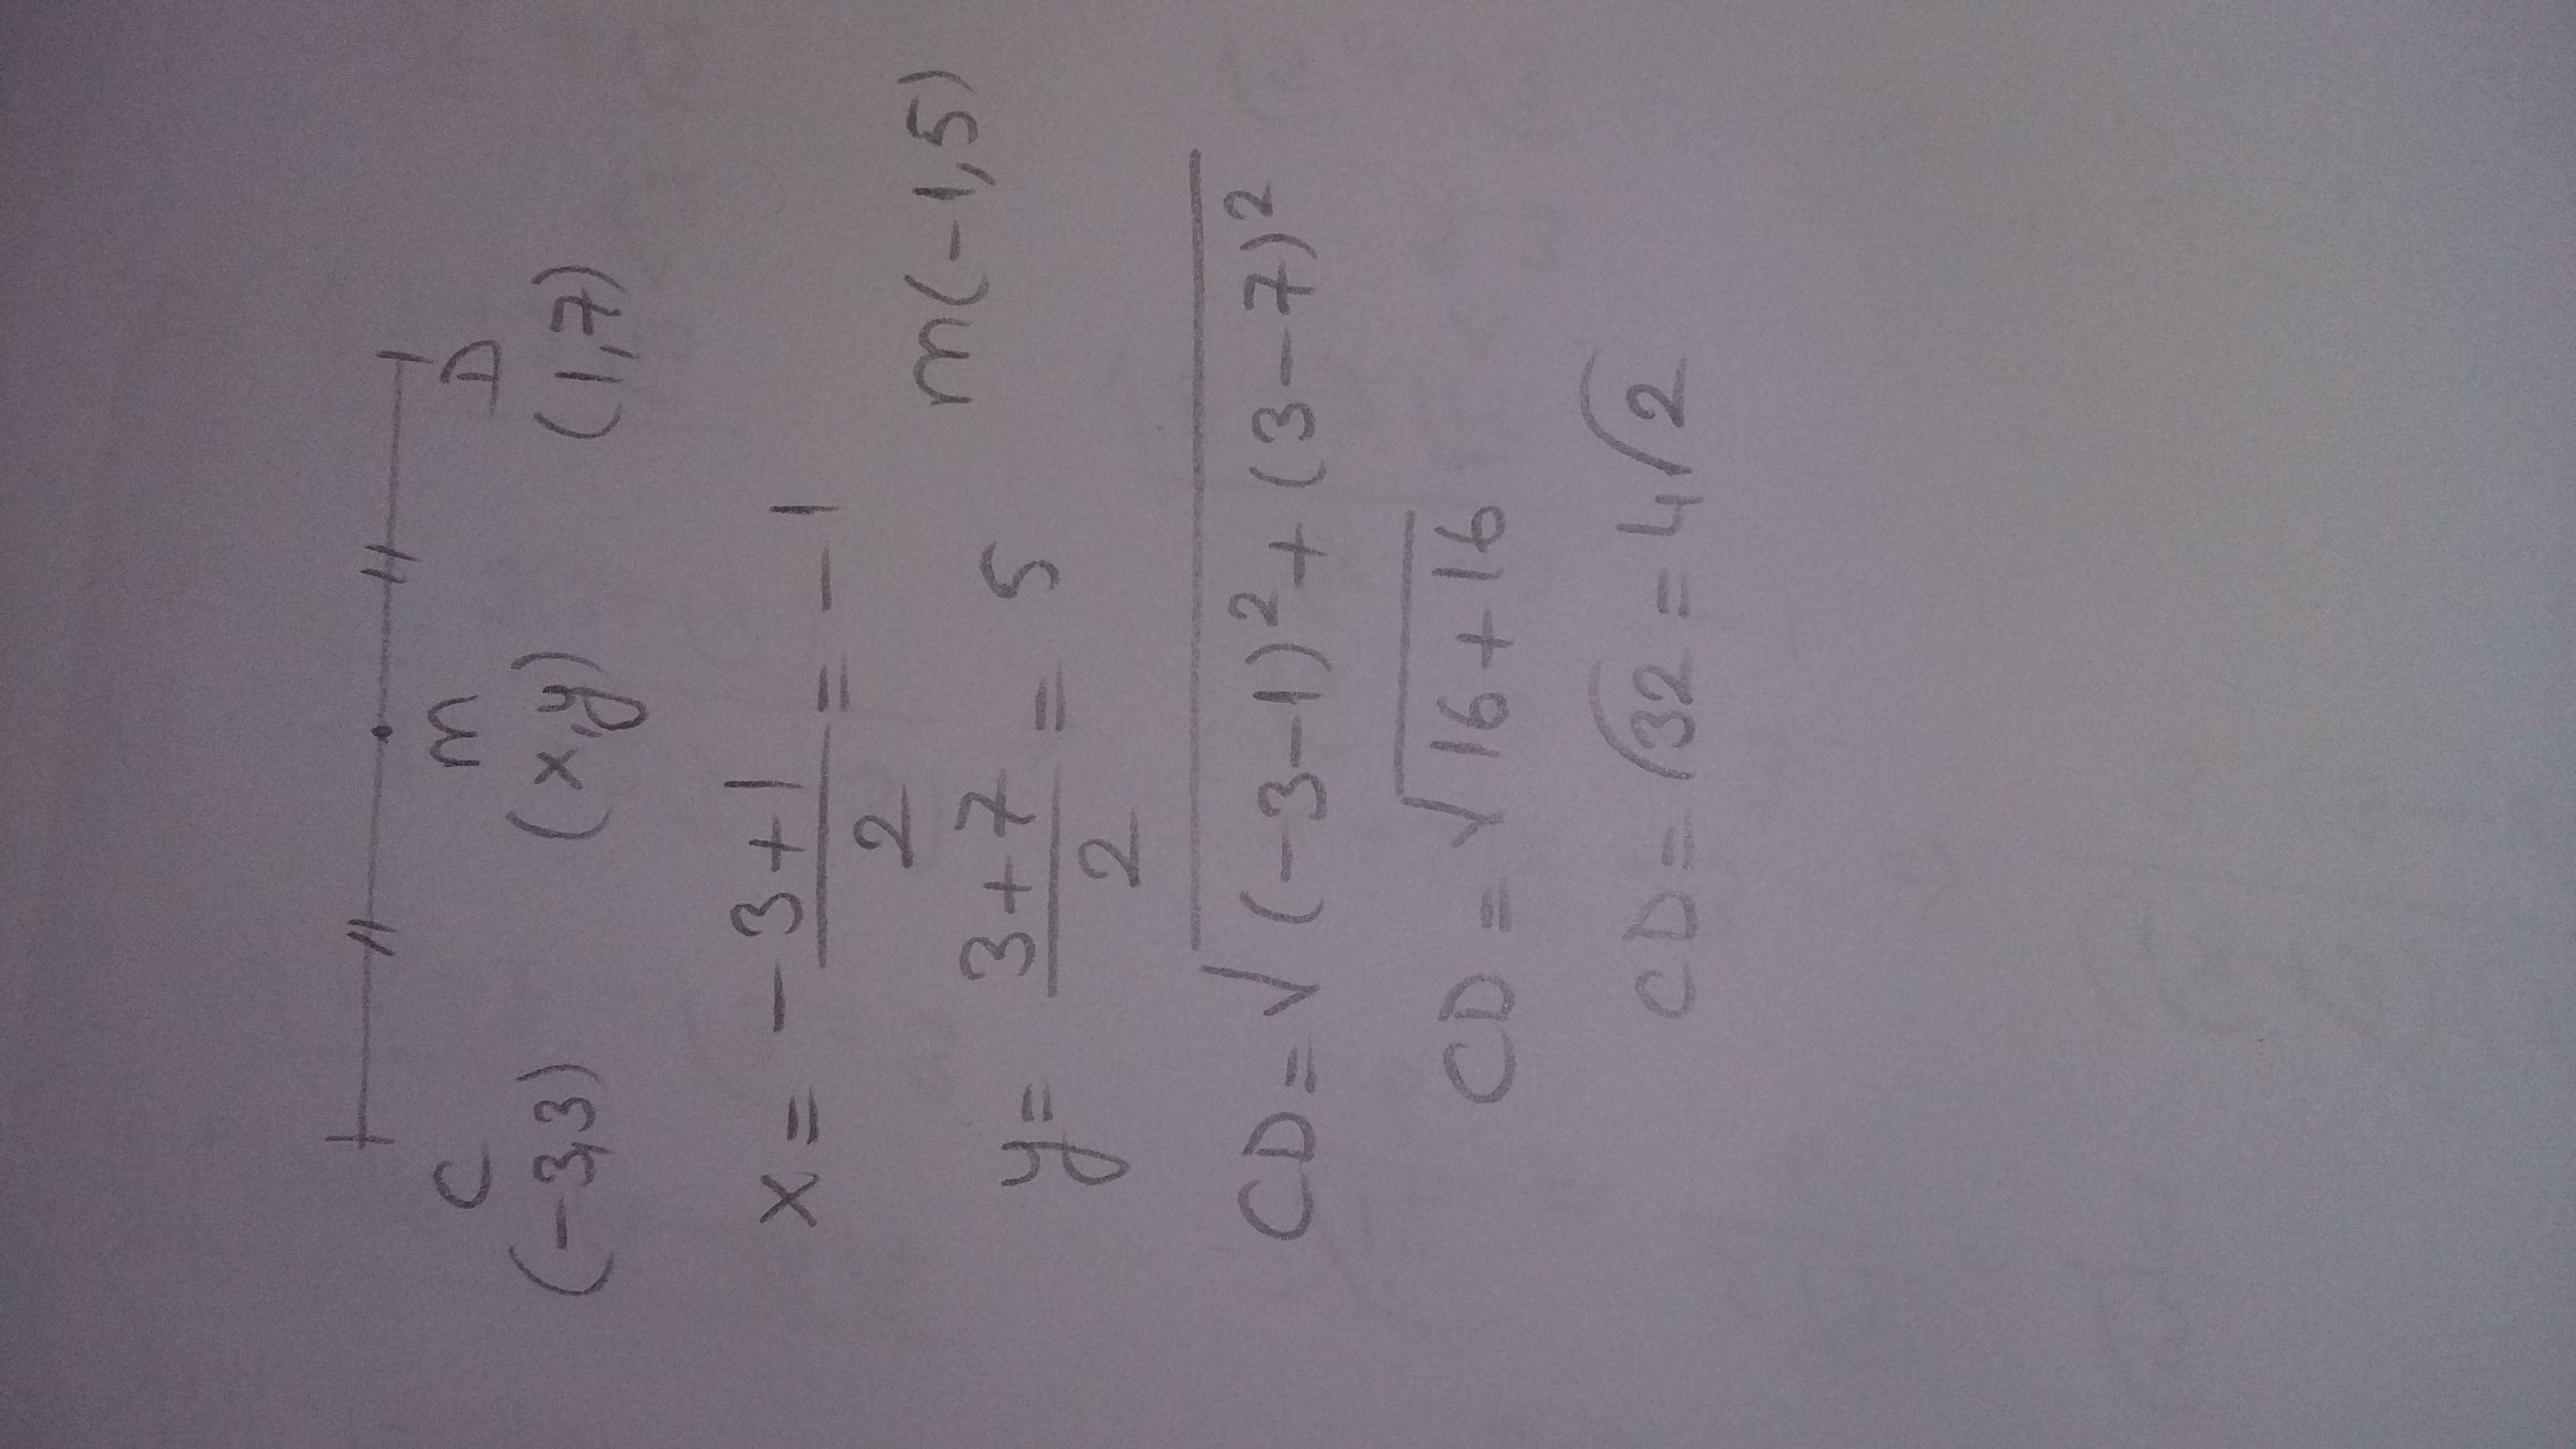 C m D
(-3,3) (x,y) (1,7)
x = -3+1/2 = -1
y = 3+7/2 = 5 m(-1,5)
CD = √(-3-1)² + (3-7)²
CD = √16+16
CD = √32 = 4√2